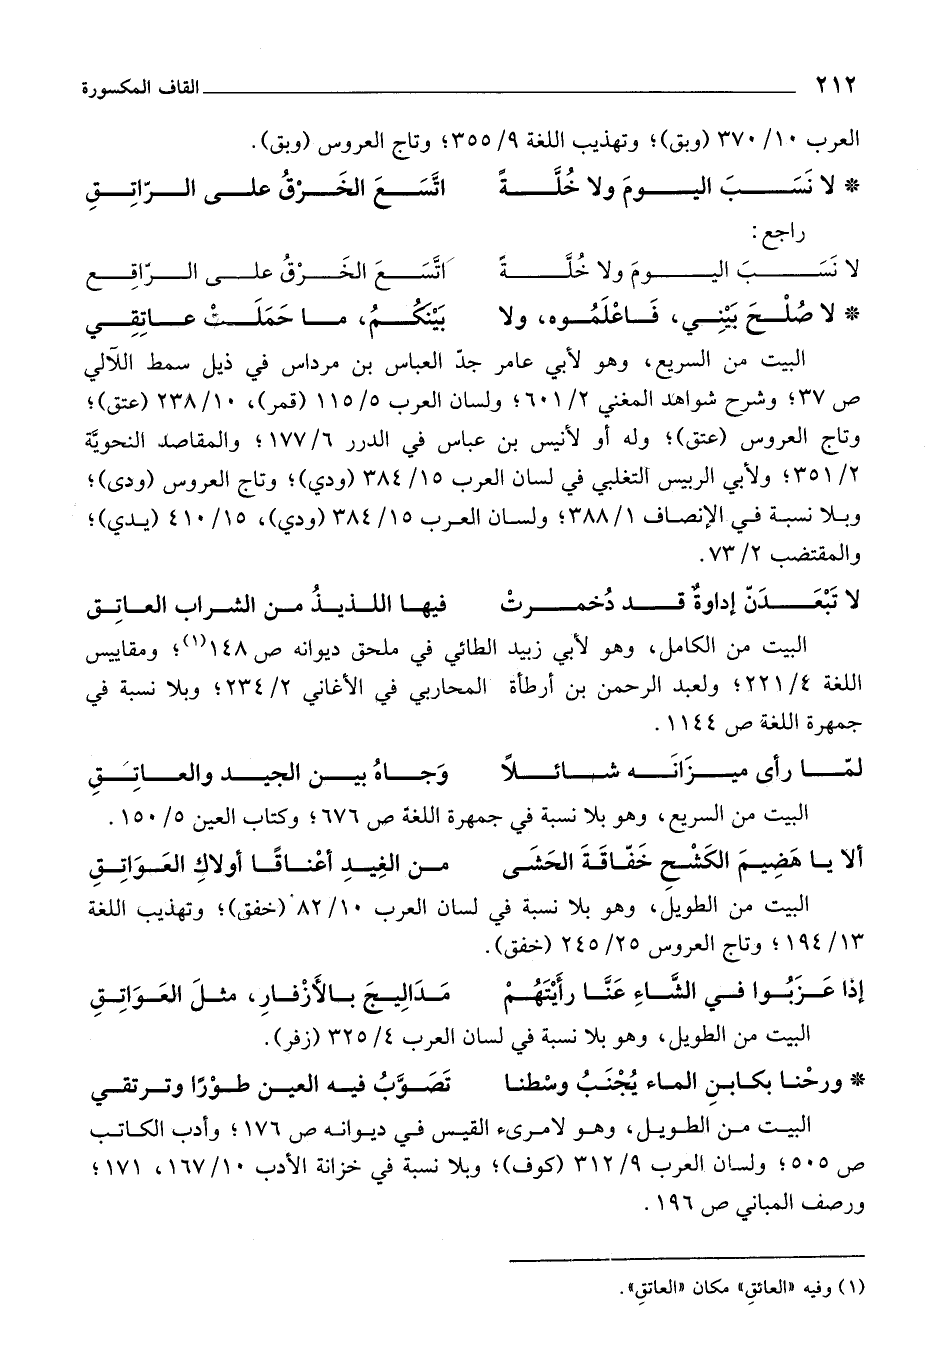 ٢١٢ القاف المكسورة
العرب ١٠/ ٣٧٠ (وبق)؛ وتهذيب اللغة ٩/ ٣٥٥؛ وتاج العروس (وبق).
* لا نَسَبَ اليومَ ولا خُلَّةً اتَّسَعَ الخَرْقُ على الرّاتِقِ
راجع:
لا نَسَبَ اليومَ ولا خُلَّةً اتَّسَعَ الخَرْقُ على الرّاقِعِ
* لا صُلْحَ بَيْنِي، فَاعْلَمُوه، ولا بَيْنَكُمُ، ما حَمَلَتْ عاتِقِي
البيت من السريع، وهو لأبي عامر جدّ العباس بن مرداس في ذيل سمط اللآلي
ص ٣٧؛ وشرح شواهد المغني ٢/ ٦٠١؛ ولسان العرب ٥/ ١١٥ (قمر)، ١٠/ ٢٣٨ (عتق)؛
وتاج العروس (عتق)؛ وله أو لأنيس بن عباس في الدرر ٦/ ١٧٧؛ والمقاصد النحويَّة
٢/ ٣٥١؛ ولأبي الربيس التغلبي في لسان العرب ١٥/ ٣٨٤ (ودي)؛ وتاج العروس (ودى)؛
وبلا نسبة في الإنصاف ١/ ٣٨٨؛ ولسان العرب ١٥/ ٣٨٤ (ودي)، ١٥/ ٤١٠ (يدي)؛
والمقتضب ٢/ ٧٣.
لا تَبْعَدَنّ إداوةٌ قد دُخمرتْ فيها اللذيذُ من الشراب العاتِق
البيت من الكامل، وهو لأبي زبيد الطائي في ملحق ديوانه ص ١٤٨(١)؛ ومقاييس
اللغة ٤/ ٢٢١؛ ولعبد الرحمن بن أرطأة المحاربي في الأغاني ٢/ ٢٣٤؛ وبلا نسبة في
جمهرة اللغة ص ١١٤٤.
لمّا رأى ميزَانَه شائلاً وَجاهُ بين الجيد والعاتِقِ
البيت من السريع، وهو بلا نسبة في جمهرة اللغة ص ٦٧٦؛ وكتاب العين ٥/ ١٥٠.
ألا يا هَضِيمَ الكَشْحِ خَفَّاقَةَ الحَشَى من الغِيدِ أعْناقًا أولاكِ العَوَاتِقِ
البيت من الطويل، وهو بلا نسبة في لسان العرب ١٠/ ٨٢ (خفق)؛ وتهذيب اللغة
١٣/ ١٩٤؛ وتاج العروس ٢٥/ ٢٤٥ (خفق).
إذا عَزَبُوا في الشَّاءِ عَنَّا رأيْتَهُمْ مَدَاليجَ بالأَزْفارِ، مثلَ العَوَاتِقِ
البيت من الطويل، وهو بلا نسبة في لسان العرب ٤/ ٣٢٥ (زفر).
* ورحْنا بكابنِ الماء يُجْنَبُ وسْطنا تَصَوَّبُ فيه العين طوْرًا وترتقي
البيت من الطويل، وهو لامرىء القيس في ديوانه ص ١٧٦؛ وأدب الكاتب
ص ٥٠٥؛ ولسان العرب ٩/ ٣١٢ (كوف)؛ وبلا نسبة في خزانة الأدب ١٠/ ١٦٧، ١٧١؛
ورصف المباني ص ١٩٦.
(١) وفيه «العائقِ» مكان «العاتقِ».